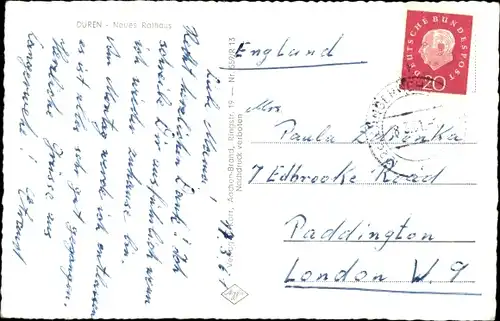 DÜREN - Neues Rathaus
17.3.61
Liebe Mama!
Recht herzlichen Dank! Ich
schreibe Dir ausführlich wenn
ich wieder zuhause bin.
Am Montag werde ich entlassen
es ist alles sehr gut gegangen.
Herzliche Grüsse aus
Langerwehe!
Aachen-Brand, Ringstr. 19 — Nr. 6598/13
Nachdruck verboten
England
DEUTSCHE BUNDESPOST
20
Mrs.
Paula
7 Edbrooke Road
Paddington
London W. 9